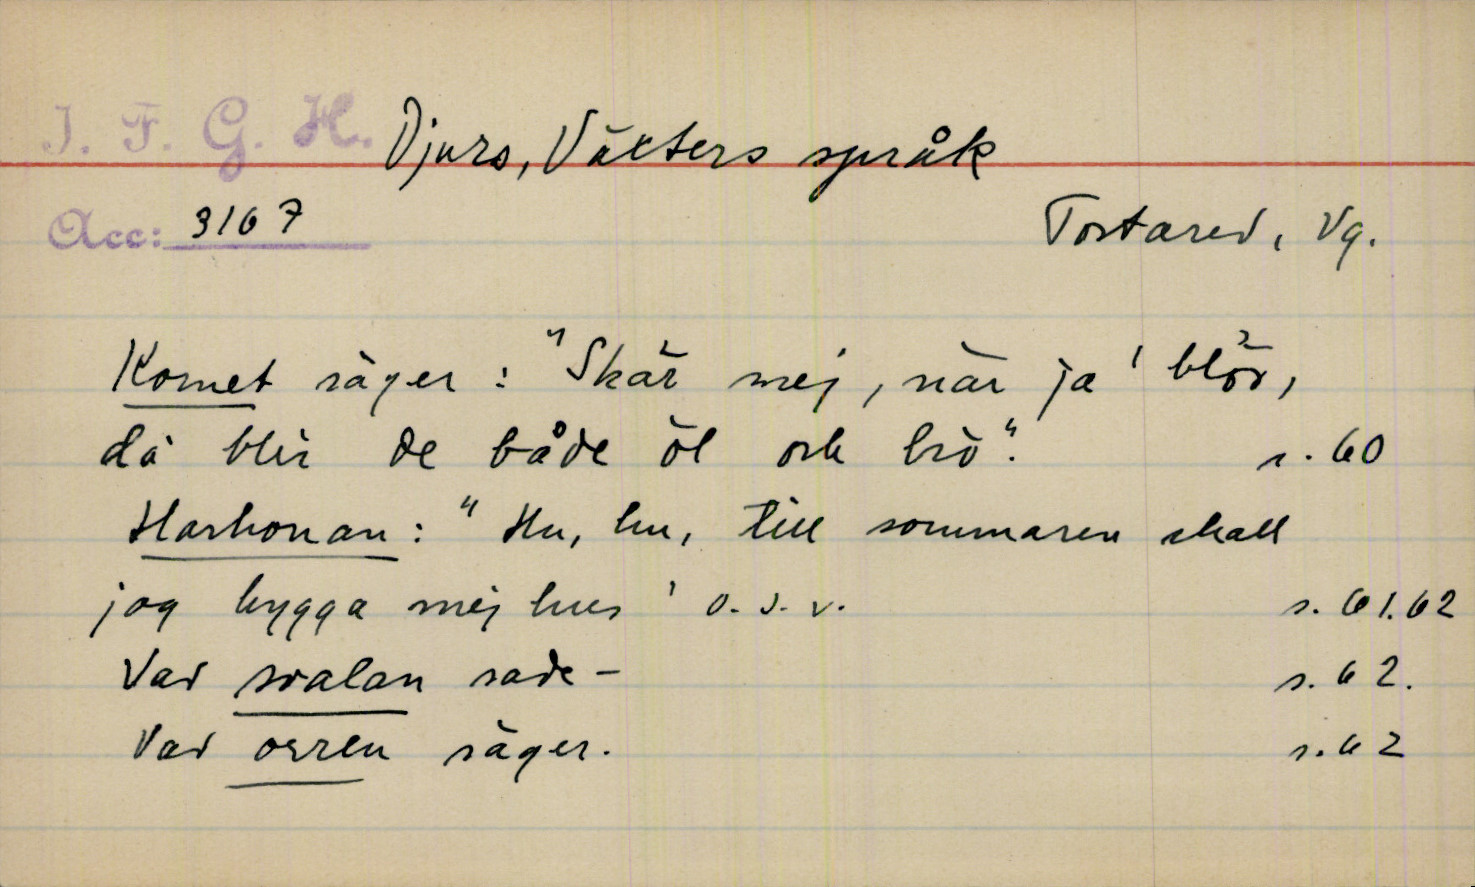 I. F. G. H. Djurs, Växters språk
Acc: 3167 Tostared, Vg.
Kornet säger: "Skär mej, när ja' blör,
då blir de både öl och brö".  s. 60
Harhonan: "Hu, hu, till sommaren skall
jag bygga mej hus' o.s.v.  s. 61.62
Vad svalan sade –  s. 62.
Vad orren säger.  s. 62